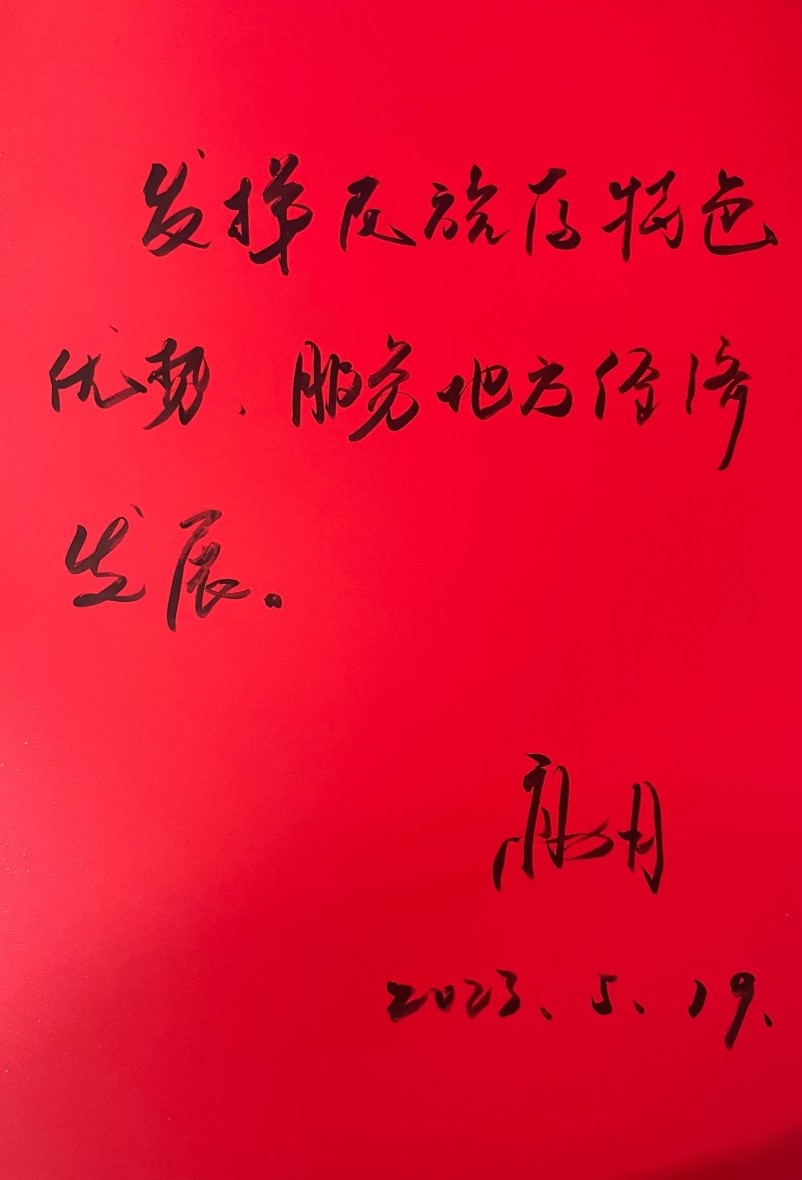 发挥民族药特色
优势、服务地方经济
发展。
2023.5.19.